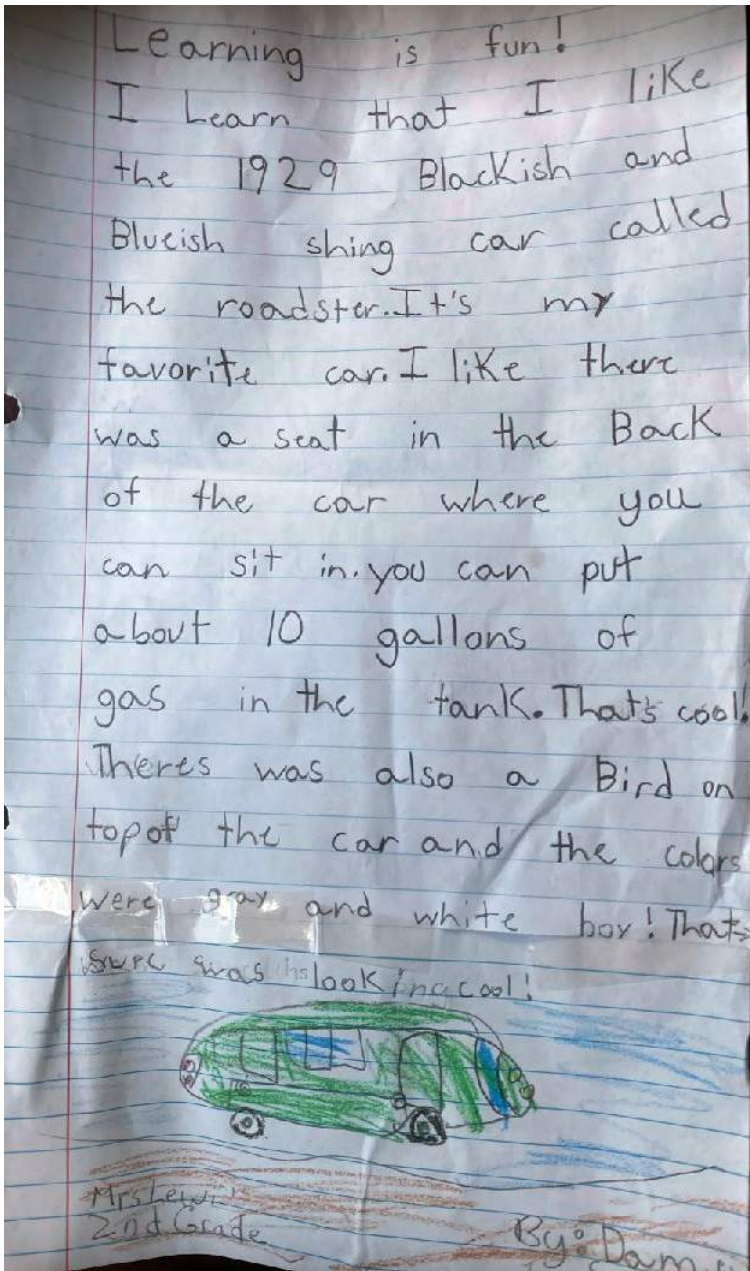 Learning is fun!
I Learn that I like
the 1929 Blackish and
Blueish shing car called
the roadster. It's my
favorite car. I like there
was a seat in the Back
of the car where you
can sit in. you can put
about 10 gallons of
gas in the tank. That's cool.
Theres was also a Bird on
top of the car and the colors
were gray and white boy! That
sure was looking cool!
Mrs
2nd Grade
By: